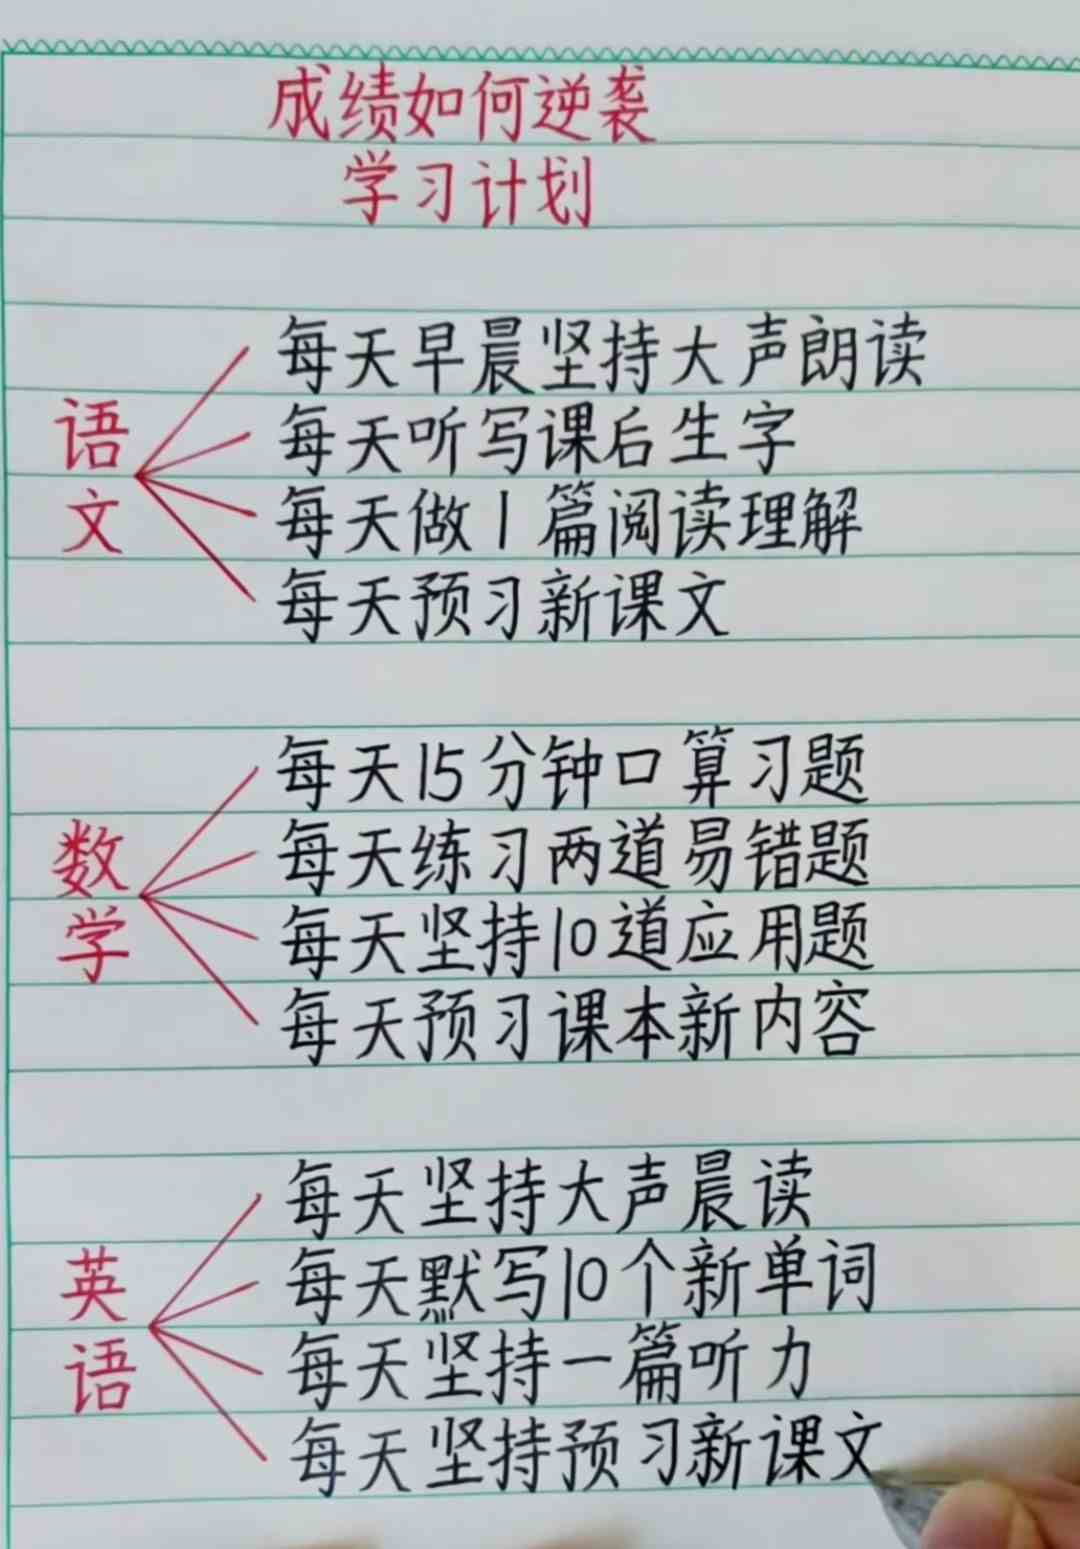 成绩如何逆袭
学习计划
语文
每天早晨坚持大声朗读
每天听写课后生字
每天做1篇阅读理解
每天预习新课文
数学
每天15分钟口算习题
每天练习两道易错题
每天坚持10道应用题
每天预习课本新内容
英语
每天坚持大声晨读
每天默写10个新单词
每天坚持一篇听力
每天坚持预习新课文